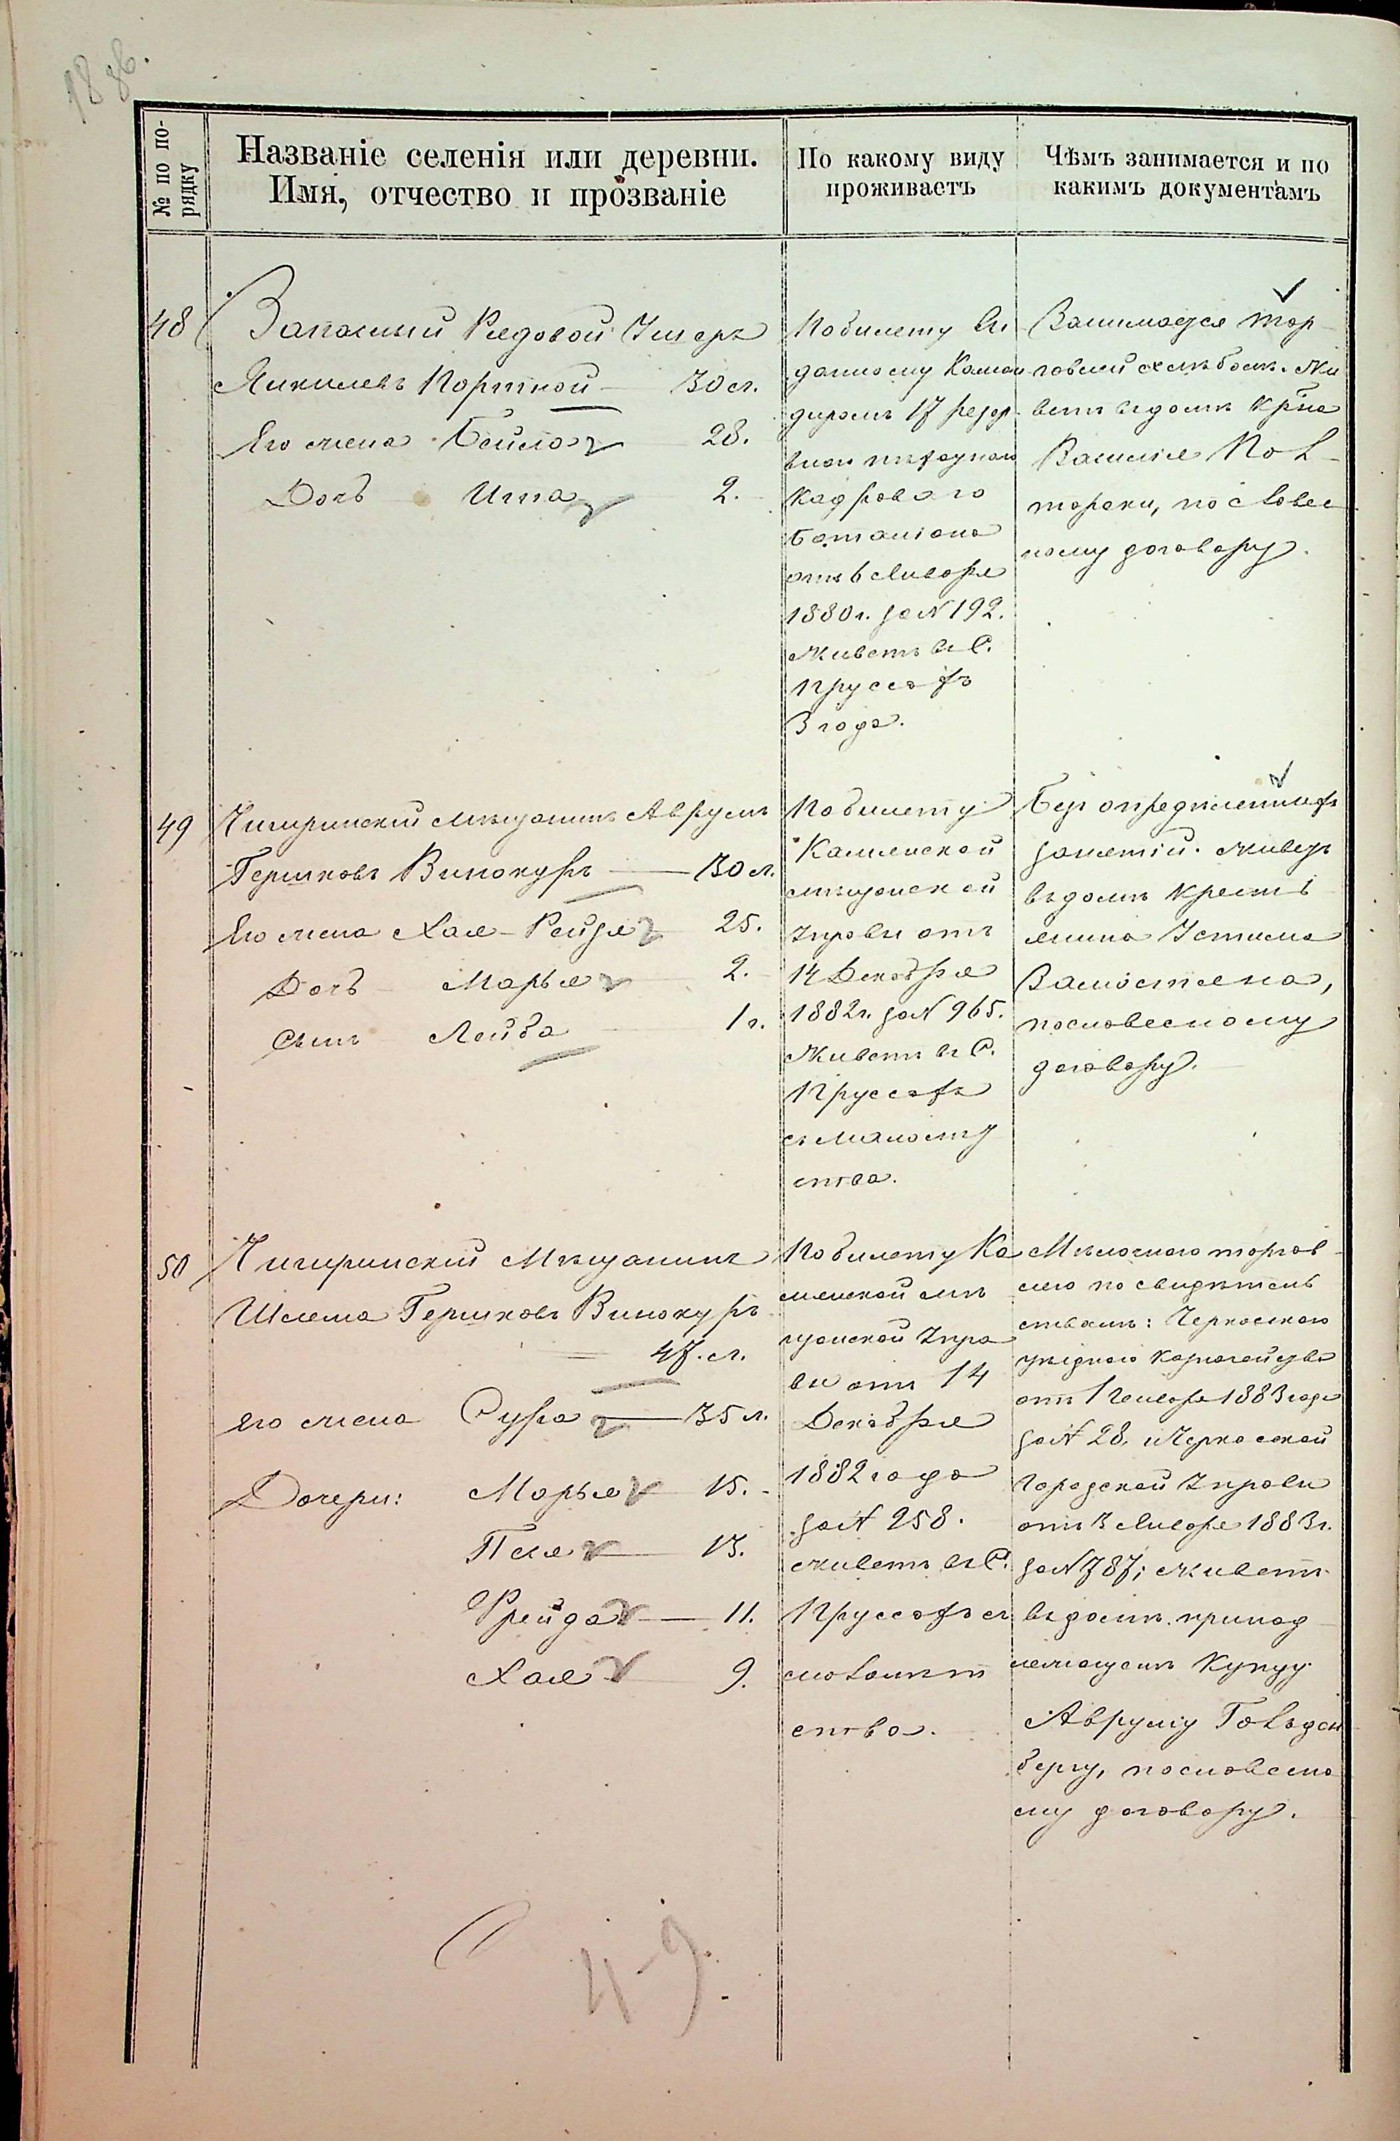 18 об.
№ по по-
рядку
Названіе селенія или деревни.
Имя, отчество и прозваніе
По какому виду
проживаетъ
Чѣмъ занимается и по
какимъ документамъ
48
Запасный Рядовой Ушеръ
Янкилевъ Портной — 30 л.
Его жена Бейла 28.
Дочь Ита 2.
По билету вы
данному Коман
диромъ 17 резер
внаго пѣхотнаго
Кадроваго
баталіона
отъ 6 Января
1880 г. за № 192.
живетъ въ С.
Пруссахъ
3 года.
Занимается тор
говлей хлѣбомъ. Жи
ветъ въ домѣ кр-на
Василія Пол
торани, по словес
ному договору.
49
Чигиринскій мѣщанинъ Аврумъ
Гершковъ Винокуръ — 30 л.
Его жена Хая-Рейзя 25.
Дочь Марья 2.
Сынъ Лейба 1 г.
По билету
Каменской
мѣщанской
Управы отъ
14 Декабря
1882 г. за № 965.
Живетъ въ С.
Пруссахъ
съ малолѣт
ства.
Безъ опредѣленныхъ
занятій. живетъ
въ домѣ крестья
янина Устима
Замостяна,
по словесному
договору.
50
Чигиринскій Мѣщанинъ
Шлема Гершковъ Винокуръ
47 л.
Его жена Сура — 35 л.
Дочери: Марья 15.
Песя 13.
Фрейда — 11.
Хая 9.
По билету Ка
менской мѣ
щанской Упра
вы отъ 14
Декабря
1882 года
за № 258.
живетъ въ С.
Пруссахъ съ
малолѣт
ства.
Мѣлочною торгов
лею по свидѣтель
ствамъ: Черкаскаго
уѣзднаго Казначейства
отъ 1 Генваря 1883 года
за № 28. и Черкаской
Городской Управы
отъ 3 Января 1883 г.
за № 787; живетъ
въ домѣ принад
лежащемъ Купцу
Авруму Гольден
бергу, по словесно
му договору.
49.